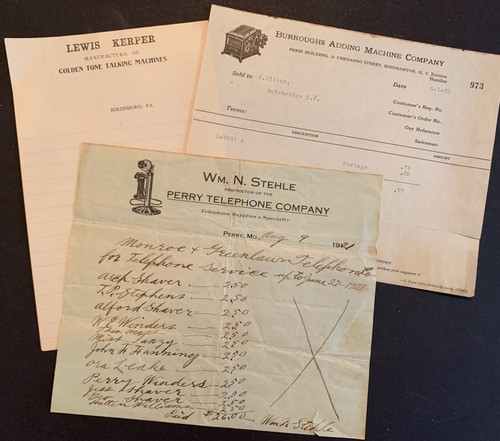 LEWIS KERPER
MANUFACTURE OF
GOLDEN TONE TALKING MACHINES
BIRDSBORO, PA.
BURROUGHS ADDING MACHINE COMPANY
PRESS BUILDING, 19 CHENANGO STREET, BINGHAMTON, N. Y. Invoice
Number 973
Sold to
Bainbridge N.Y.
Date
Customer's Req. No.
Customer's Order No.
Our Reference
Terms:
Salesman
DESCRIPTION AMOUNT
Postage .75
WM. N. STEHLE
PROPRIETOR OF THE
PERRY TELEPHONE COMPANY
Telephone Supplies a Specialty
PERRY, MO., Aug 9 1921
Monroe & Greenlawn Telephone
for Telephone Service up to June 27-1921
Shaver 2.50
T.P. Stephens 2.50
Alford Shaver 2.50
W E Winders 2.50
Miss Tanzy 2.50
John A Hanning 2.50
Ora Leake 2.50
Perry Winders 2.50
Jess Shaver 2.50
Geo Shaver 2.50
Williams 2.50
Paid $26.00 Wm N Stehle